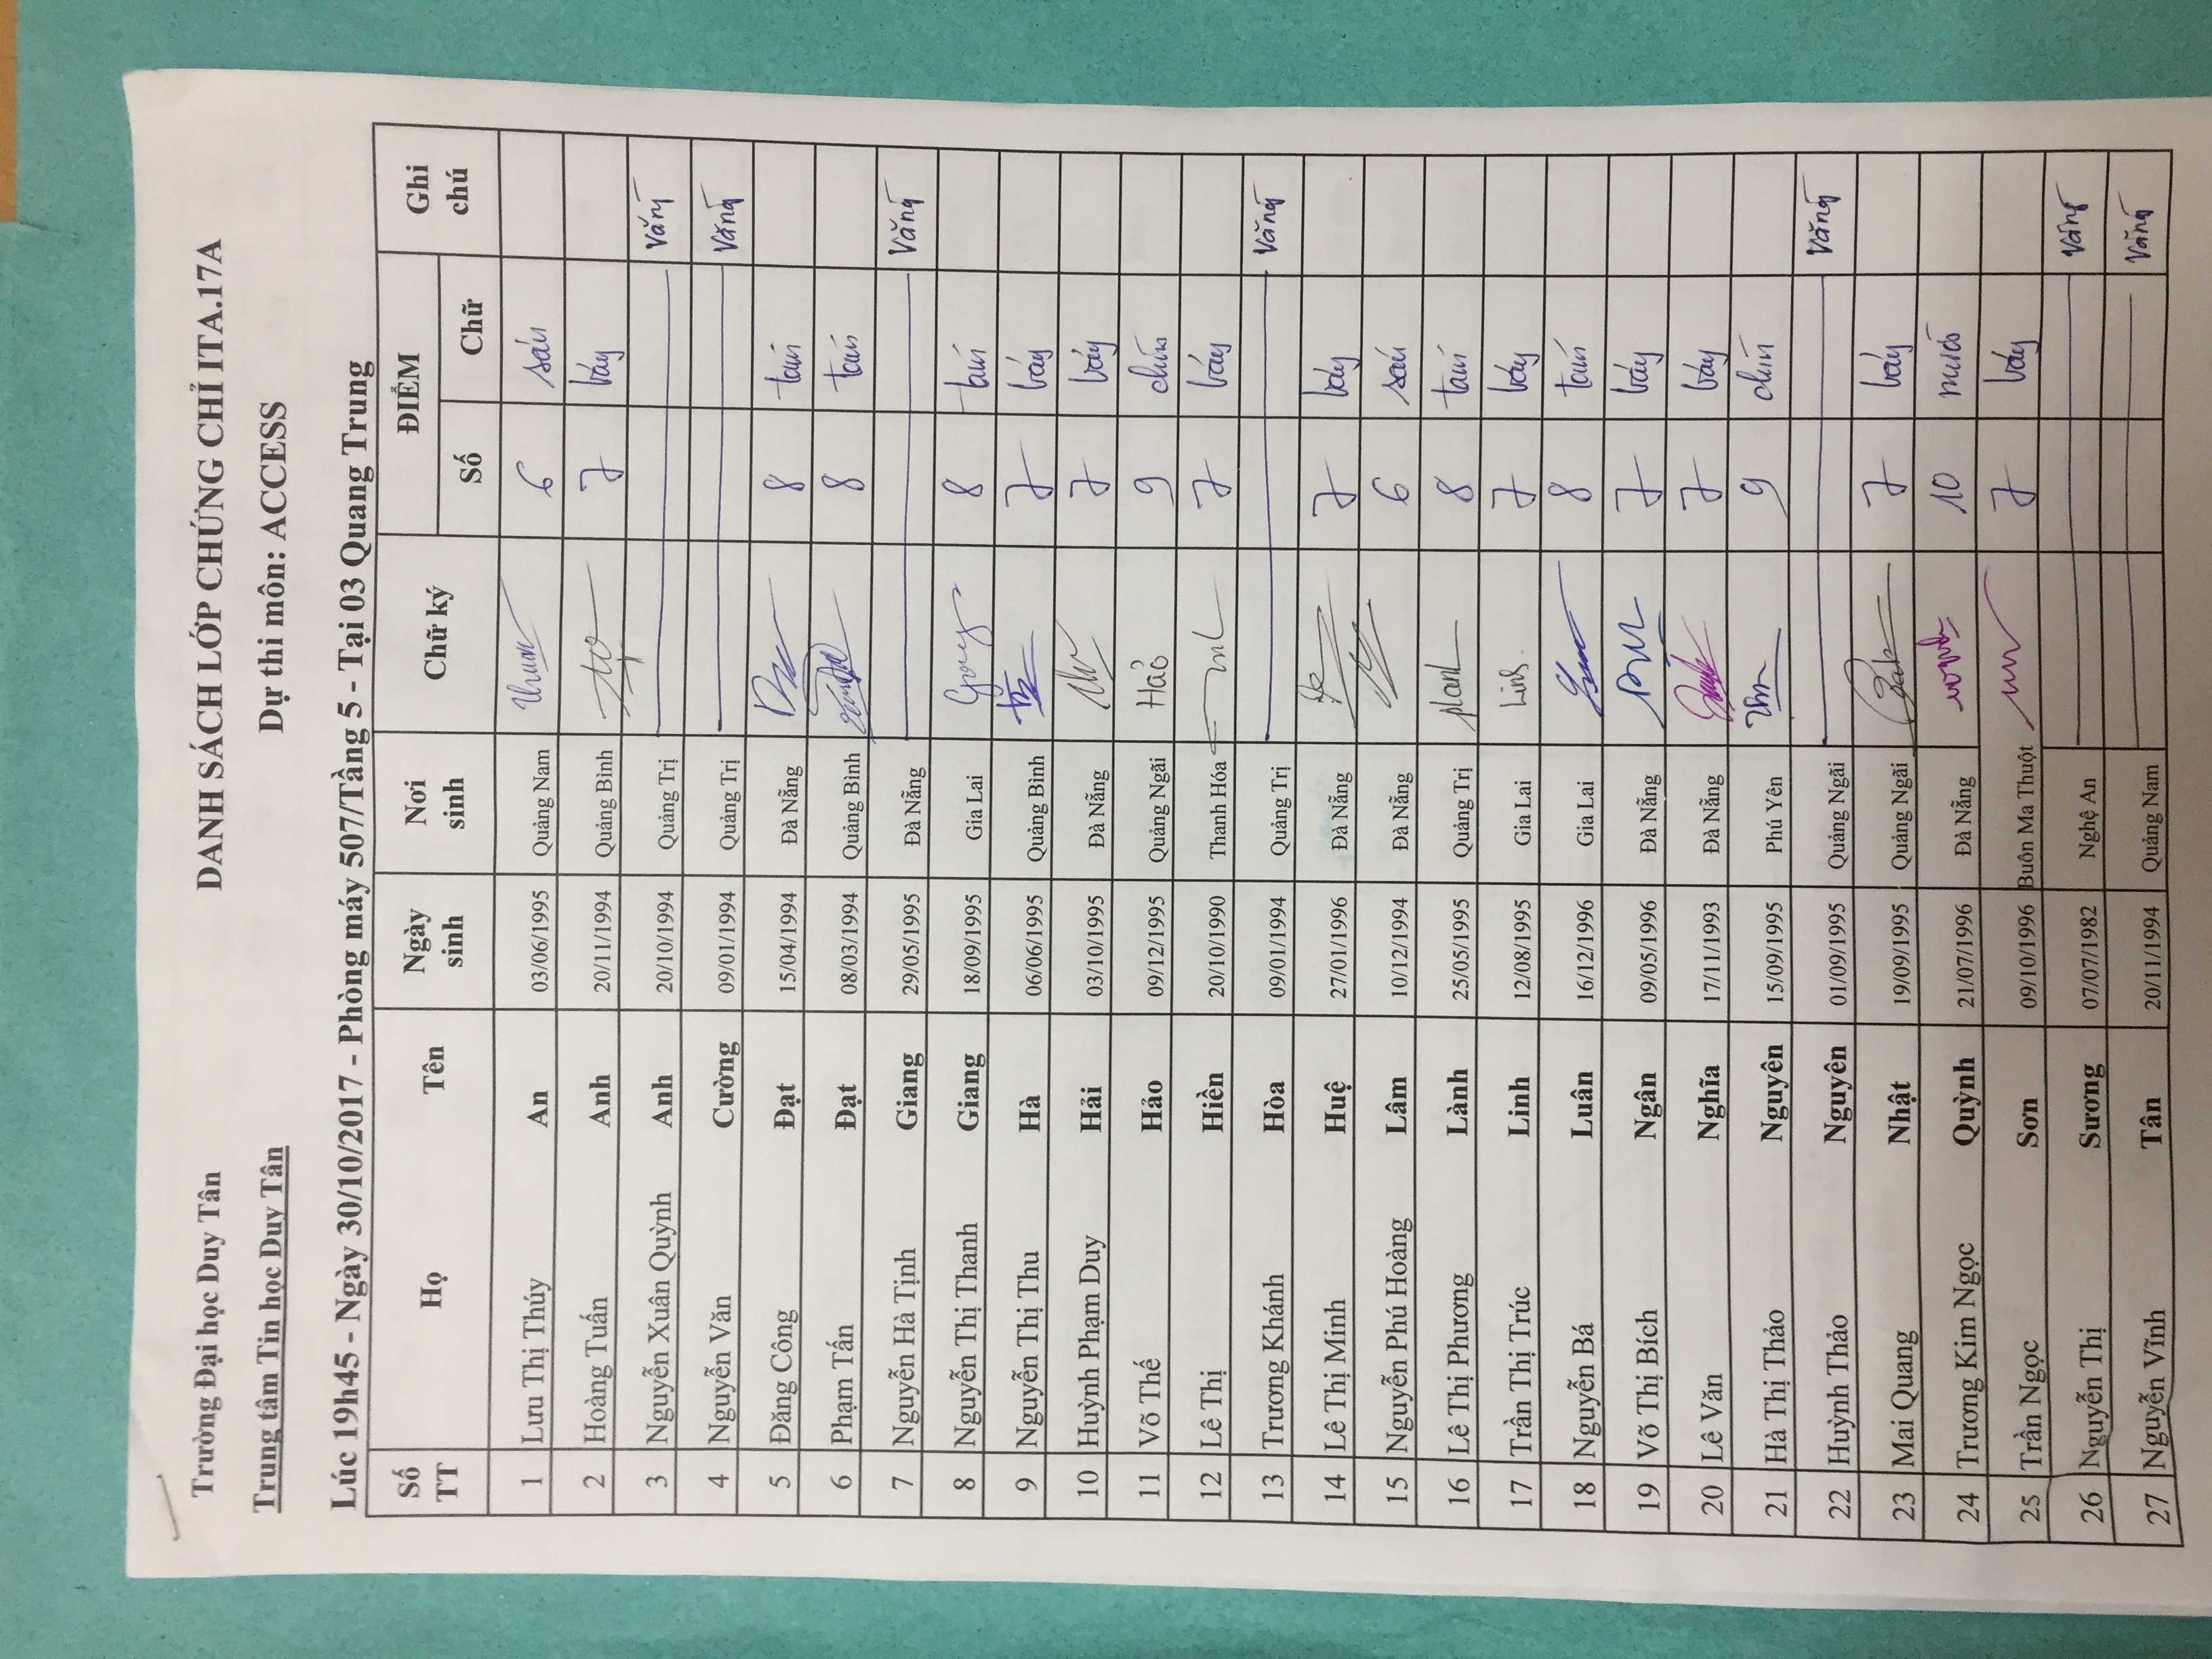 Trường Đại học Duy Tân DANH SÁCH LỚP CHỨNG CHỈ ITA.17A
Trung tâm Tin học Duy Tân Dự thi môn: ACCESS
Lúc 19h45 - Ngày 30/10/2017 - Phòng máy 507/Tầng 5 - Tại 03 Quang Trung
Số TT Họ Tên Ngày sinh Nơi sinh Chữ ký ĐIỂM Ghi chú
Số Chữ
1 Lưu Thị Thúy An 03/06/1995 Quảng Nam 6 sáu
2 Hoàng Tuấn Anh 20/11/1994 Quảng Bình 7 bảy
3 Nguyễn Xuân Quỳnh Anh 20/10/1994 Quảng Trị Vắng
4 Nguyễn Văn Cường 09/01/1994 Quảng Trị Vắng
5 Đăng Công Đạt 15/04/1994 Đà Nẵng 8 tám
6 Phạm Tấn Đạt 08/03/1994 Quảng Bình 8 tám
7 Nguyễn Hà Tịnh Giang 29/05/1995 Đà Nẵng Vắng
8 Nguyễn Thị Thanh Giang 18/09/1995 Gia Lai Giang 8 tám
9 Nguyễn Thị Thu Hà 06/06/1995 Quảng Bình 7 bảy
10 Huỳnh Phạm Duy Hải 03/10/1995 Đà Nẵng 7 bảy
11 Võ Thế Hảo 09/12/1995 Quảng Ngãi Hảo 9 chín
12 Lê Thị Hiền 20/10/1990 Thanh Hóa 7 bảy
13 Trương Khánh Hòa 09/01/1994 Quảng Trị Vắng
14 Lê Thị Minh Huệ 27/01/1996 Đà Nẵng 7 bảy
15 Nguyễn Phú Hoàng Lâm 10/12/1994 Đà Nẵng 6 sáu
16 Lê Thị Phương Lành 25/05/1995 Quảng Trị 8 tám
17 Trần Thị Trúc Linh 12/08/1995 Gia Lai Linh 7 bảy
18 Nguyễn Bá Luân 16/12/1996 Gia Lai 8 tám
19 Võ Thị Bích Ngân 09/05/1996 Đà Nẵng 7 bảy
20 Lê Văn Nghĩa 17/11/1993 Đà Nẵng 7 bảy
21 Hà Thị Thảo Nguyên 15/09/1995 Phú Yên 9 chín
22 Huỳnh Thảo Nguyên 01/09/1995 Quảng Ngãi Vắng
23 Mai Quang Nhật 19/09/1995 Quảng Ngãi 7 bảy
24 Trương Kim Ngọc Quỳnh 21/07/1996 Đà Nẵng 10 mười
25 Trần Ngọc Sơn 09/10/1996 Buôn Ma Thuột 7 bảy
26 Nguyễn Thị Sương 07/07/1982 Nghệ An Vắng
27 Nguyễn Vĩnh Tân 20/11/1994 Quảng Nam Vắng